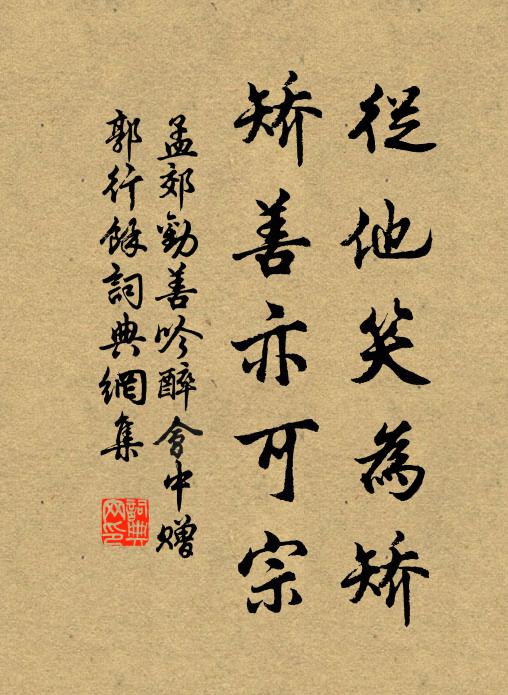 從他笑為矯
矯善亦可宗
孟郊勸善吟醉會中贈
郭行餘詞典網集
詞典网印